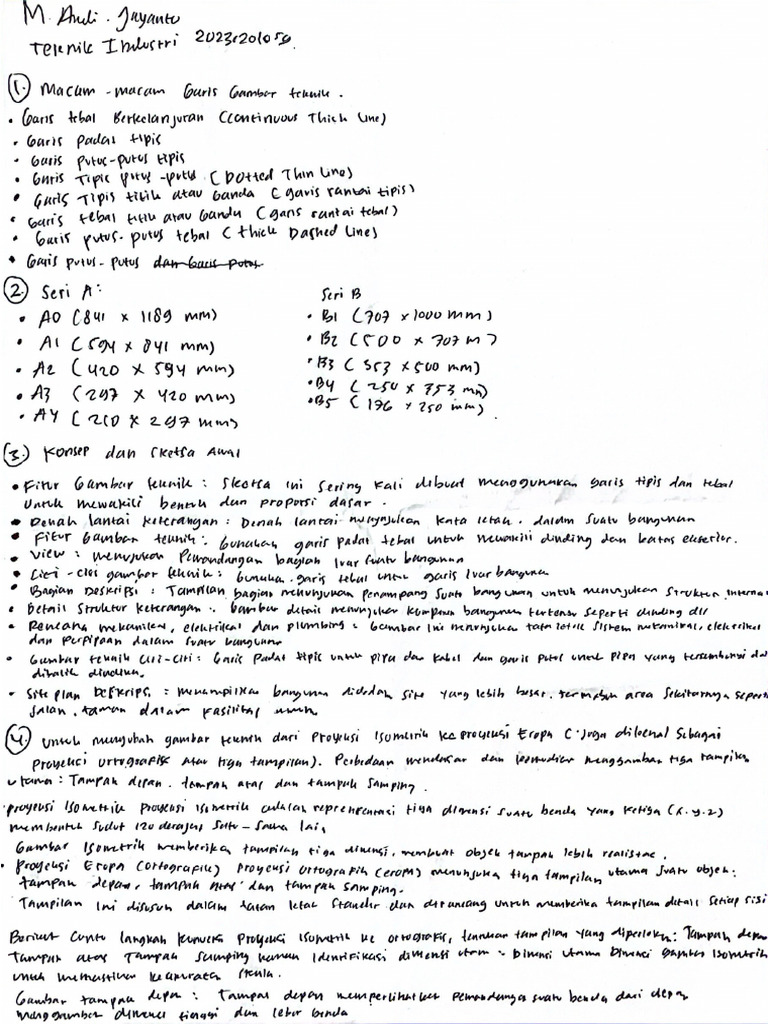 M. Andi. Jayanto
Teknik Industri 2023201059.
1. Macam-macam Garis Gambar teknik.
• Garis tebal Berkelanjuran (Continuous Thick Line)
• Garis Padat tipis
• Garis putus-putus tipis
• Garis Tipis putus-putus (Dotted Thin Line)
• Garis Tipis titik atau Ganda (garis rantai tipis)
• Garis tebal titik atau Ganda (garis rantai tebal)
• Garis putus-putus tebal (thick Dashed Line)
• Garis putus-putus dan Garis Putus
2. Seri A: Seri B
• A0 (841 x 1189 mm) • B1 (707 x 1000 mm)
• A1 (594 x 841 mm) • B2 (500 x 707 m)
• A2 (420 x 594 mm) • B3 (353 x 500 mm)
• A3 (297 x 420 mm) • B4 (250 x 353 mm)
• A4 (210 x 297 mm) • B5 (176 x 250 mm)
3. Konsep dan Sketsa Awal
• Fitur Gambar teknik: Sketsa ini Sering kali dibuat menggunakan garis tipis dan tebal
untuk mewakili bentuk dan proporsi dasar.
• Denah lantai keterangan: Denah lantai menunjukan kata letak. dalam suatu bangunan
• Fitur Gambar teknik: Gunakan garis padat tebal untuk mewakili dinding dan batas eksterior.
• View: menunjukan Pemandangan bagian luar suatu bangunan
• Ciri-ciri gambar teknik: Gunakan garis tebal untuk garis luar bangunan
• Bagian Deskripsi: Tampilan bagian menunjukan penampang suatu bangunan untuk menunjukan Struktur internal
• Detail Struktur keterangan: Gambar detail menunjukan komponen bangunan tertentu seperti dinding dll
• Rencana mekanikal, elektrikal dan plumbing: Gambar ini menunjukan tata letak sistem mekanikal, elektrikal
dan perpipaan dalam suatu bangunan
• Gambar teknik Ciri-Ciri: Garis Padat tipis untuk pipa dan kabel dan garis putus untuk pipa yang tersembunyi di
dibalik dinding.
• Site plan Deskripsi: menampilkan bangunan didalam site yang lebih besar. termasuk area sekitarnya seperti
Jalan. taman dalam fasilitas umum
4. Untuk mengubah gambar teknik dari Proyeksi Isometrik ke proyeksi Eropa (Juga dikenal Sebagai
Proyeksi ortografik atau tiga tampilan). Perbedaan mendasar dan kemudian menggambar tiga tampilan
utama: Tampak depan. tampak atas dan tampak samping.
• proyeksi Isometrik Proyeksi isometrik adalah representasi tiga dimensi suatu benda yang ketiga (x.y.z)
membentuk sudut 120 derajat Satu-sama lain,
Gambar Isometrik memberikan tampilan tiga dimensi. membuat objek tampak lebih realistas.
• Proyeksi Eropa (ortografik) Proyeksi ortografik (eropa) menunjukan tiga tampilan utama suatu objek:
tampak depan, tampak atas dan tampak samping.
Tampilan Ini disusun dalam tatan letak Standar dan dirancang untuk memberikan tampilan detail Setiap sisi
Berikut Contu langkah konversi Proyeksi Isometrik ke ortografis, tentukan tampilan yang diperlukan: Tampak depan
Tampak atas Tampak Samping Identifikasi dimensi utama: Dimensi utama Dimensi gambar Isometrik
untuk memastikan keakuratan
Gambar tampak depan: Tampak depan memperlihatkan Pemandangan suatu benda dari depan
menggambar dimensi tinggi dan lebar benda